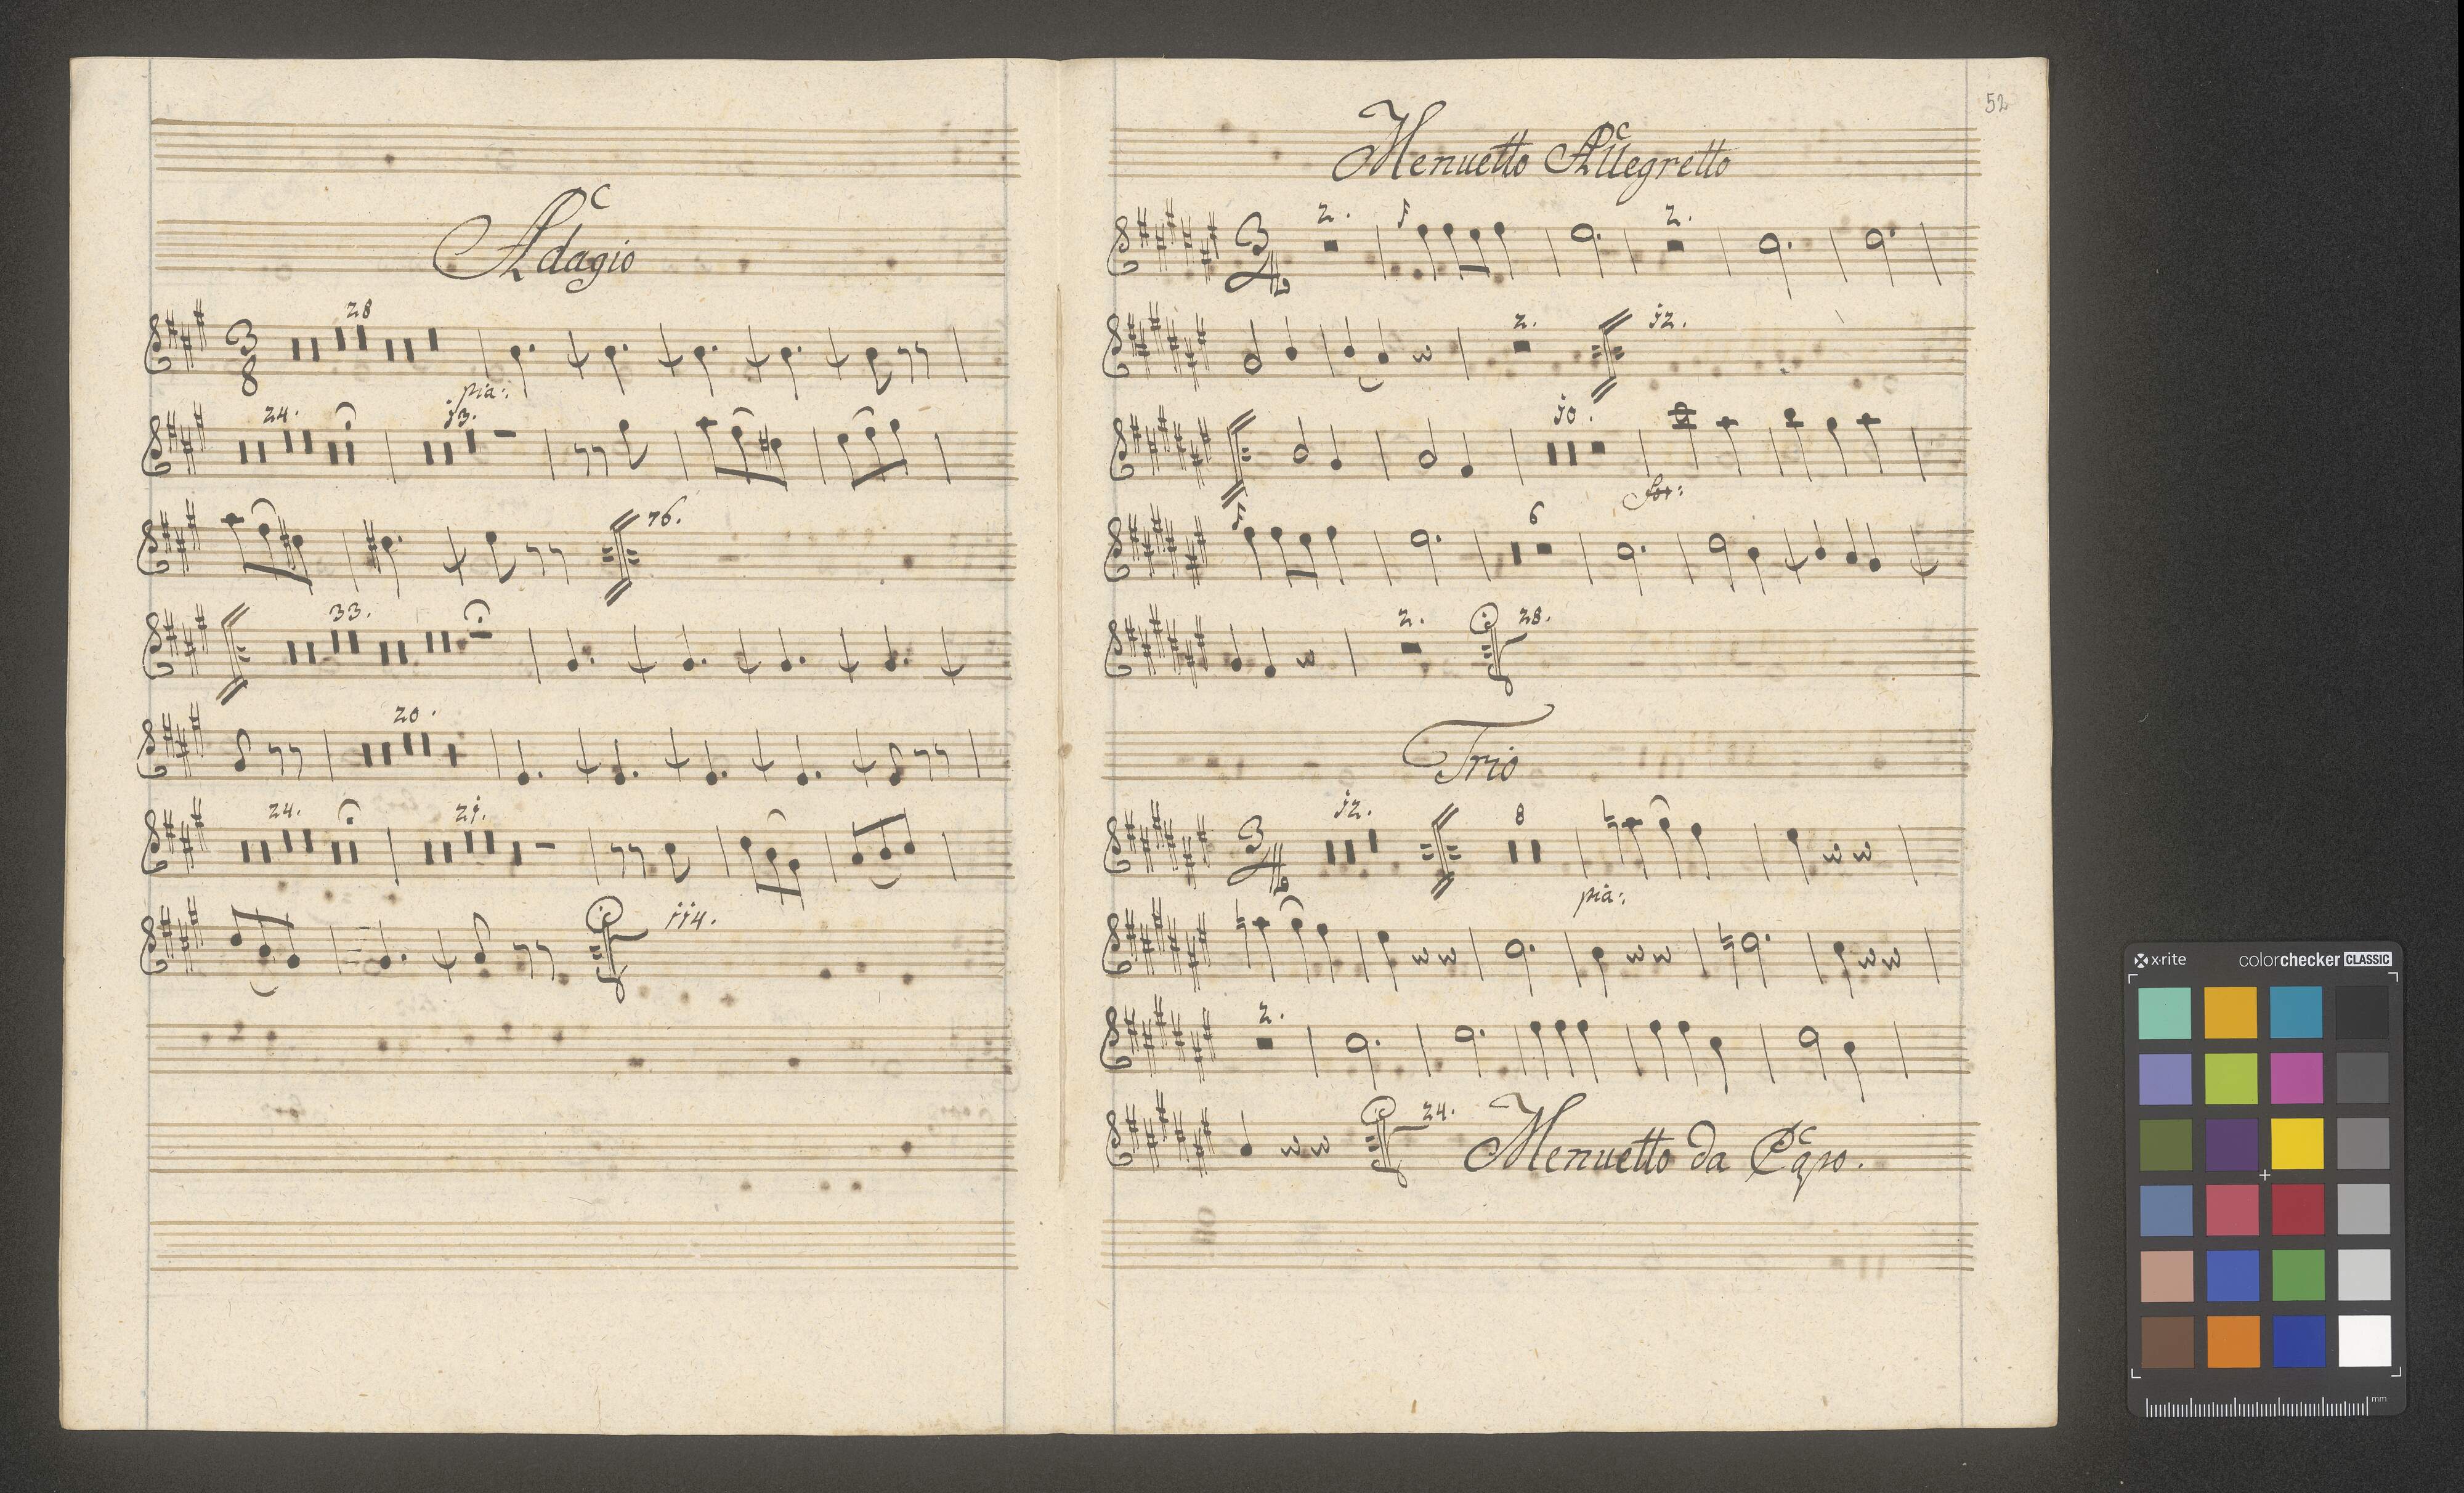 Adagio
3/8 28
pia:
24. 13.
76.
33.
20.
24. 21.
114.
52
Menuetto Allegretto
3/4 2. 2.
2. 12.
10.
for:
6
2. 28.
Trio
3/4 12. 8
pia:
2.
24. Menuetto da Capo.
x-rite colorchecker CLASSIC
mm